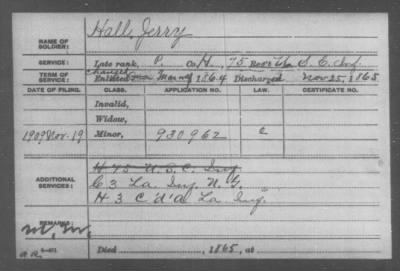 NAME OF SOLDIER: Hall, Jerry
SERVICE: Late rank, P. Co. H, 75 Reg't U.S.C. Inf
TERM OF SERVICE: Enlisted Mar 1864 Discharged Nov 25, 1865
DATE OF FILING. CLASS. APPLICATION NO. LAW. CERTIFICATE NO.
Invalid,
Widow,
1909 Nov. 19 Minor, 930962 C
ADDITIONAL SERVICES: H 75 U.S.C. Inf
C 3 La Inf N. G.
H 3 C'd'A La Inf.
REMARKS:
Died , 1865, at